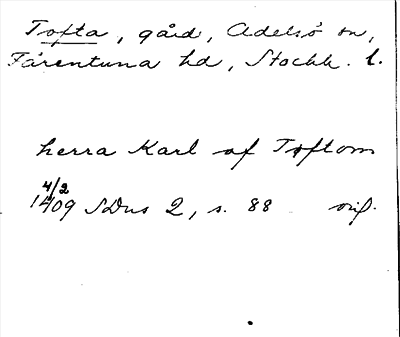 Tofta, gård, Adelsö sn,
Färentuna hd, Stockh. l.
herra Karl af Toftom
4/2
1409 SDns 2, s. 88 orig.